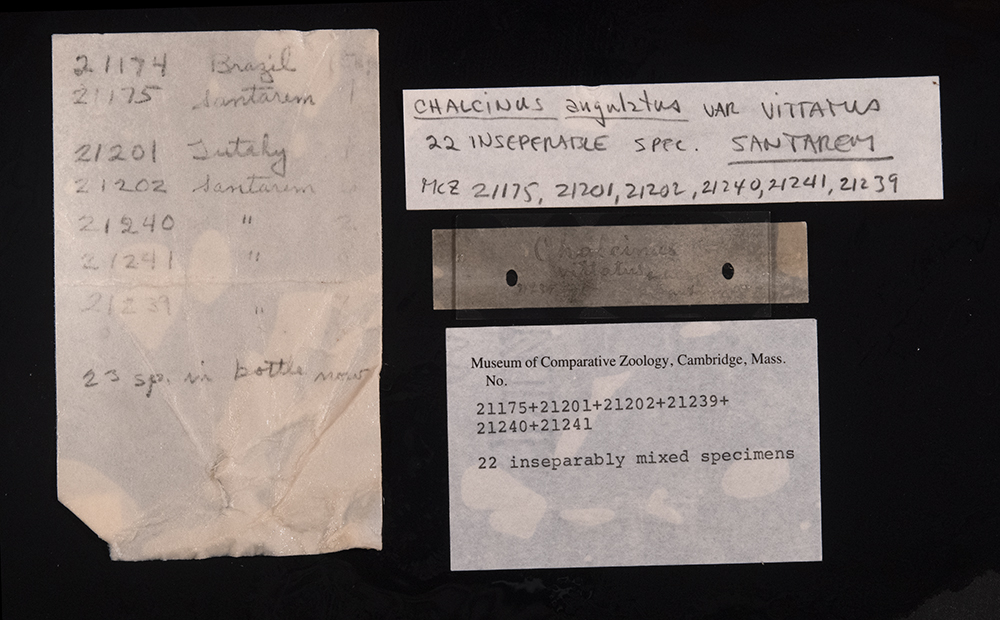 21174 Brazil
21175 Santarem 1
21201 Jutahy
21202 Santarem
21240 " 2
21241 "
21239 "
23 sp. in bottle now
CHALCINUS angulatus VAR VITTATUS
22 INSEPERABLE SPEC. SANTAREM
MCZ 21175, 21201, 21202, 21240, 21241, 21239
Chalcinus
vittatus
Museum of Comparative Zoology, Cambridge, Mass.
No.
21175+21201+21202+21239+
21240+21241
22 inseparably mixed specimens